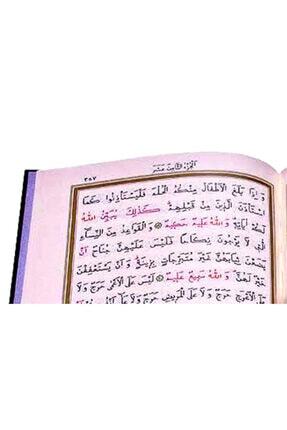 الجزء الثامن عشر
٣٥٧
وَاِذَا بَلَغَ الْاَطْفَالُ مِنْكُمُ الْحُلُمَ فَلْيَسْتَأْذِنُوا كَمَا
اسْتَأْذَنَ الَّذِينَ مِنْ قَبْلِهِمْ كَذٰلِكَ يُبَيِّنُ اللّٰهُ
لَكُمْ اٰيَاتِهِ وَاللّٰهُ عَلِيمٌ حَكِيمٌ وَالْقَوَاعِدُ مِنَ النِّسَاءِ
الّٰتِي لَا يَرْجُونَ نِكَاحًا فَلَيْسَ عَلَيْهِنَّ جُنَاحٌ اَنْ
يَضَعْنَ ثِيَابَهُنَّ غَيْرَ مُتَبَرِّجَاتٍ بِزِينَةٍ وَاَنْ يَسْتَعْفِفْنَ
خَيْرٌ لَهُنَّ وَاللّٰهُ سَمِيعٌ عَلِيمٌ لَيْسَ عَلَى الْاَعْمٰى حَرَجٌ وَلَا
عَلَى الْاَعْرَجِ حَرَجٌ وَلَا عَلَى الْمَرِيضِ حَرَجٌ وَلَا